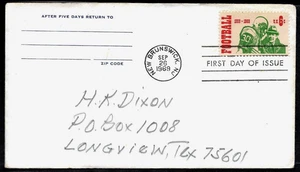 AFTER FIVE DAYS RETURN TO
ZIP CODE
NEW BRUNSWICK, N.J.
SEP
26
1969
FOOTBALL
1869-1969
U.S. 6¢
FIRST DAY OF ISSUE
H.K. Dixon
P.O. Box 1008
Longview, Tex 75601